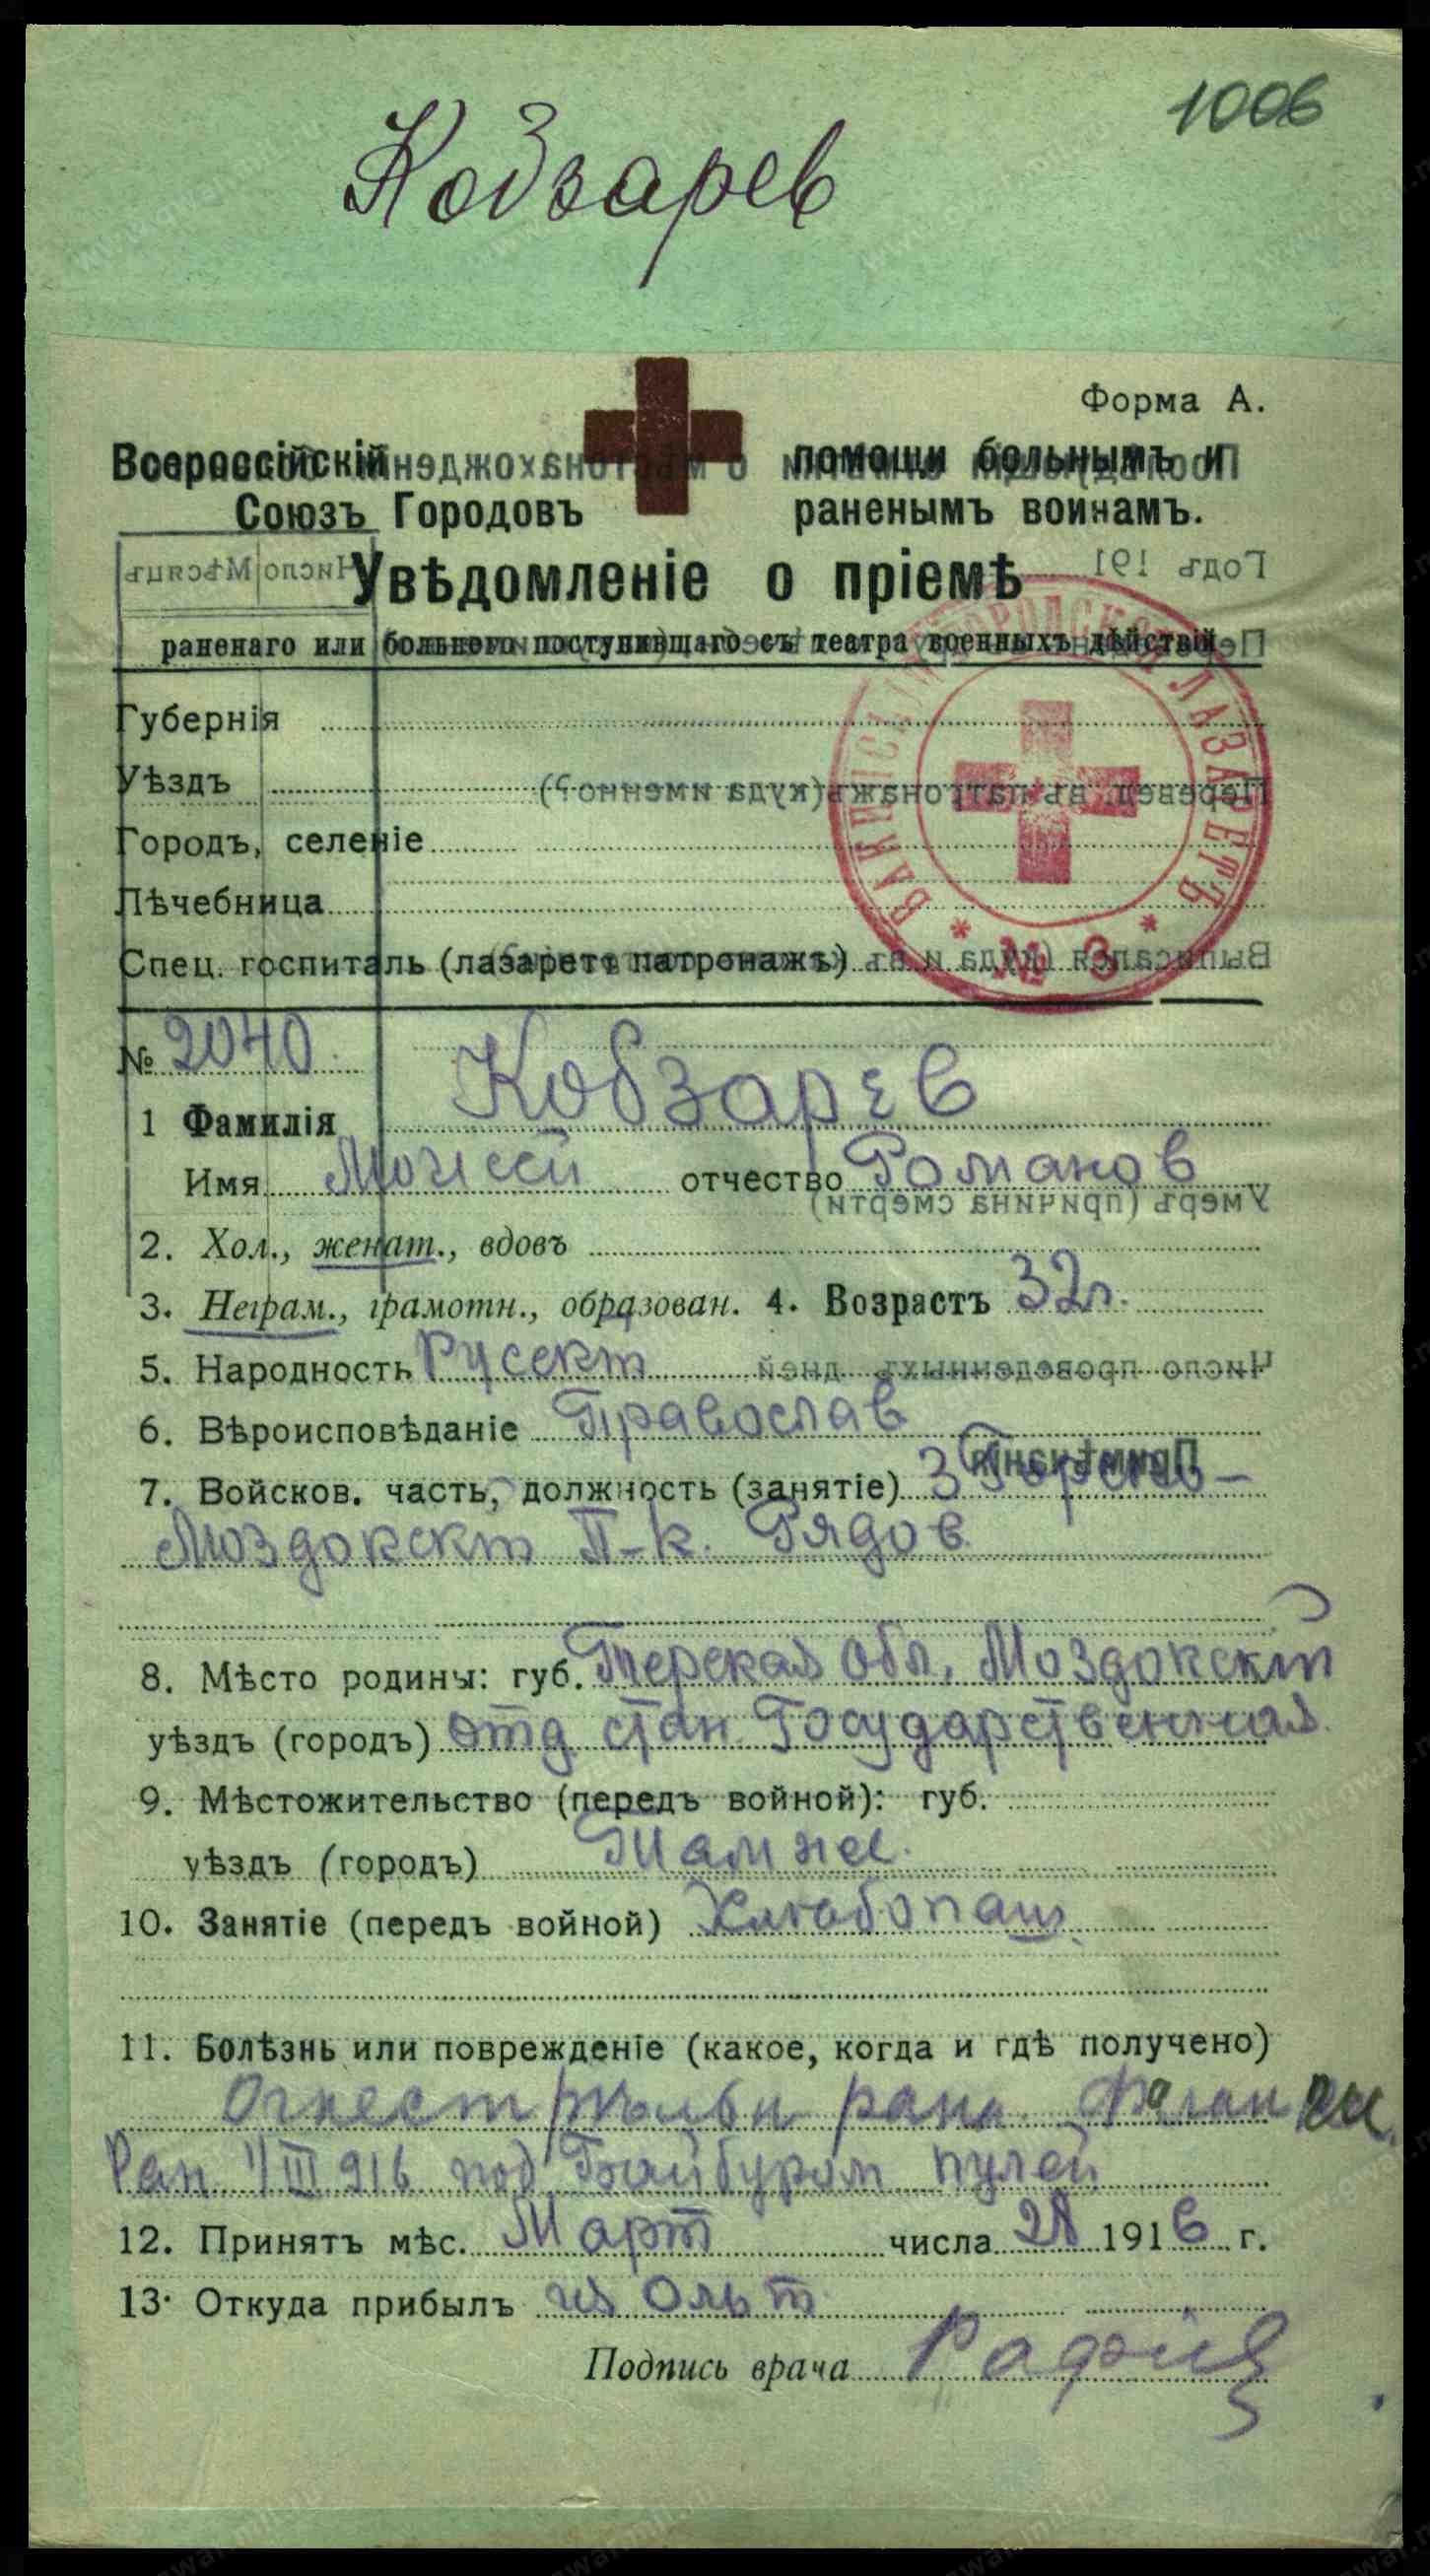 1006
Кобзарев
Форма А.
Всероссійскій помощи больнымъ и
Союзъ Городовъ раненымъ воинамъ.
Увѣдомленіе о пріемѣ
раненаго или больного поступившаго съ театра военныхъ дѣйствій
Губернія
Уѣздъ
Городъ, селеніе
Лѣчебница
Спец. госпиталь (лазаретъ патронажъ)
ГОРОДСКОЙ ЛАЗАРЕТЪ № 3
№ 2040
1 Фамилія Кобзарев
Имя Моисей отчество Романов
2. Хол., женат., вдовъ
3. Неграм., грамотн., образован. 4. Возрастъ 32 г.
5. Народность Русскт
6. Вѣроисповѣданіе Православ
7. Войсков. часть, должность (занятіе) 3 Горско-
Моздокскт П-к. Рядов.
8. Мѣсто родины: губ. Терская обл. Моздокскт
уѣздъ (городъ) отд стан. Государственная.
9. Мѣстожительство (передъ войной): губ.
уѣздъ (городъ) Там же.
10. Занятіе (передъ войной) Хлѣбопаш.
11. Болѣзнь или поврежденіе (какое, когда и гдѣ получено)
Огнестрѣльн рана
Ран. III 916 под пулей
12. Принятъ мѣс. Март числа 28 1916 г.
13. Откуда прибылъ из Ольт
Подпись врача